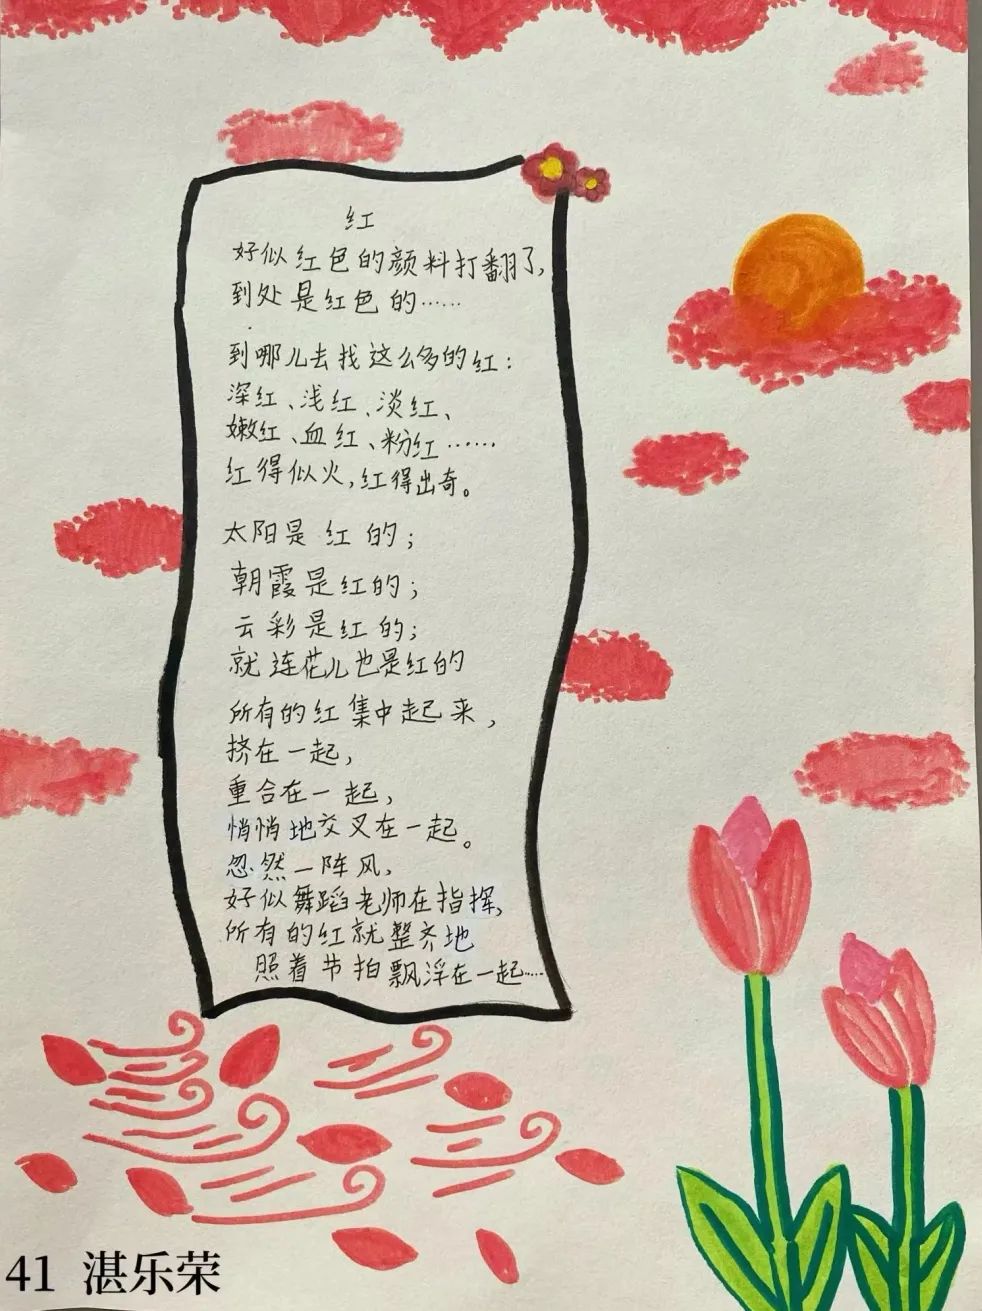 红
好似红色的颜料打翻了,
到处是红色的……
到哪儿去找这么多的红:
深红、浅红、淡红、
嫩红、血红、粉红……
红得似火,红得出奇。
太阳是红的;
朝霞是红的;
云彩是红的;
就连花儿也是红的
所有的红集中起来,
挤在一起,
重合在一起,
悄悄地交叉在一起。
忽然一阵风,
好似舞蹈老师在指挥,
所有的红就整齐地
照着节拍飘浮在一起……
41 湛乐荣